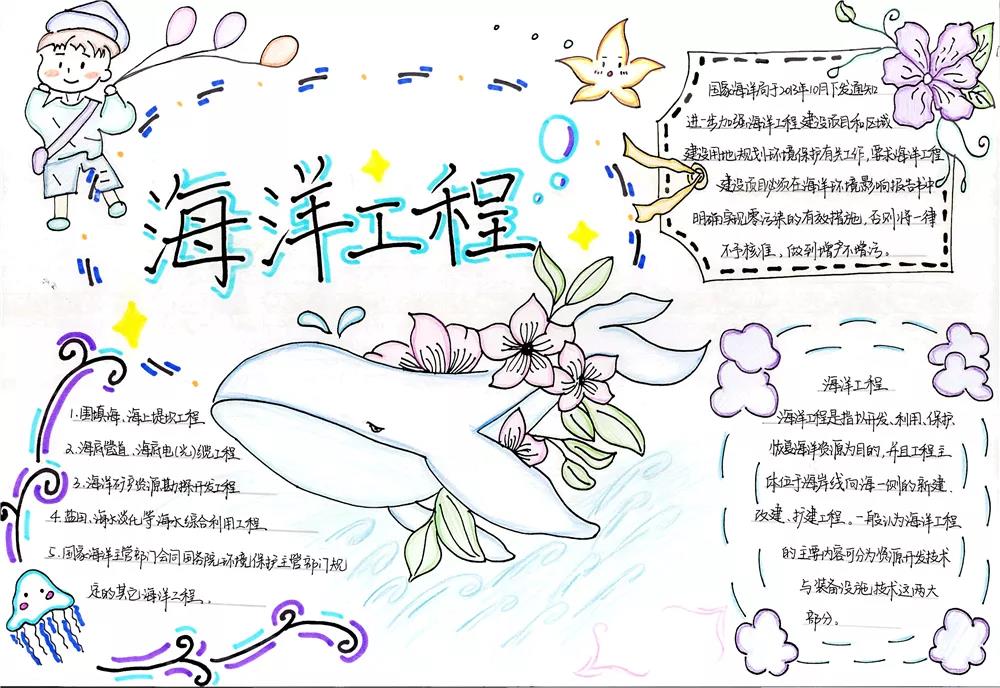 海洋工程
国家海洋局于2013年10月下发通知
进一步加强海洋工程建设项目和区域
建设用地规划环境保护有关工作,要求海洋工程
建设项目必须在海洋环境影响报告书中
明确实现零污染的有效措施,否则将一律
不予核准,做到增产不增污。
1.围填海、海上堤坝工程
2.海底管道、海底电(光)缆工程
3.海洋矿产资源勘探开发工程
4.盐田、海水淡化等海水综合利用工程
5.国家海洋主管部门会同国务院环境保护主管部门规
定的其它海洋工程。
海洋工程
海洋工程是指以开发、利用、保护、
恢复海洋资源为目的,并且工程主
体位于海岸线向海一侧的新建、
改建、扩建工程。一般认为海洋工程
的主要内容可分为资源开发技术
与装备设施技术这两大
部分。